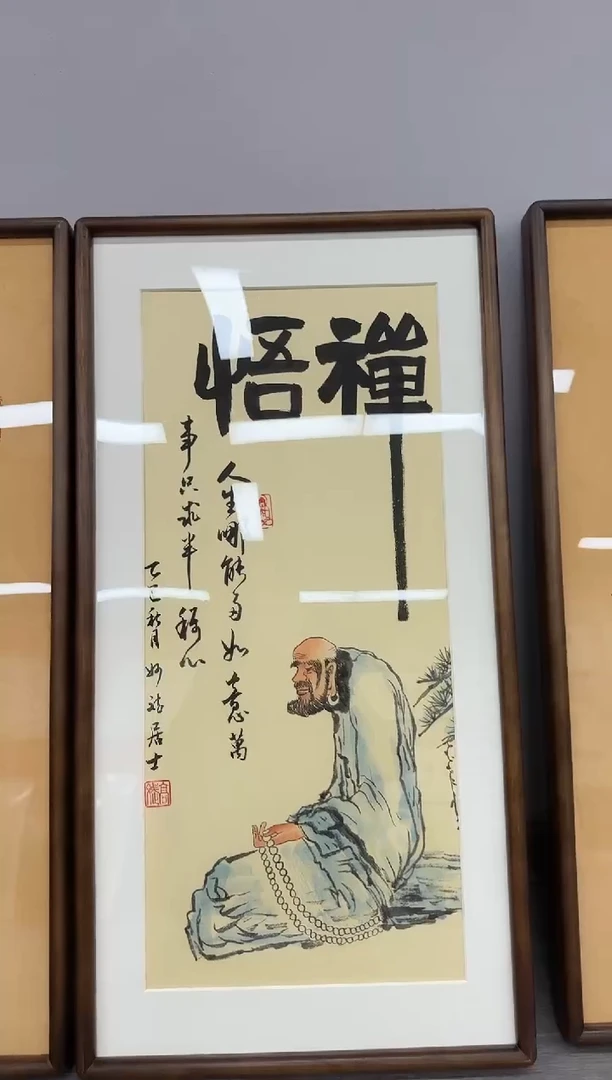 禪悟
人生哪能多如意萬
事只求半稱心
乙巳秋月妙居士